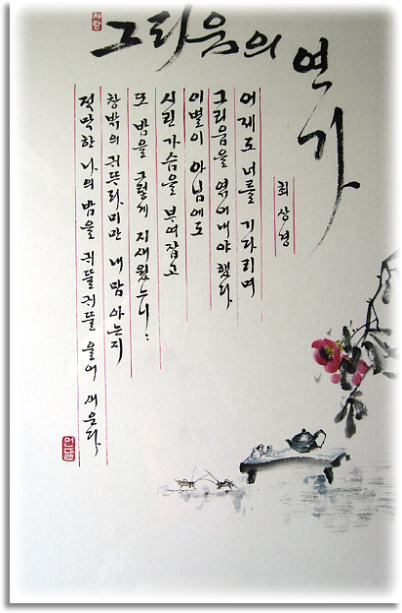 사랑
그리움의 연가
최상경
어제도 너를 기다리며
그리움을 엮어내야 했다
이별이 아님에도
시린 가슴을 부여잡고
또 밤을 그렇게 지새웠누니:
창밖의 귀뜨라미만 내 맘 아는지
적막한 나의 밤을 귀뚤귀뚤 울어 새운다